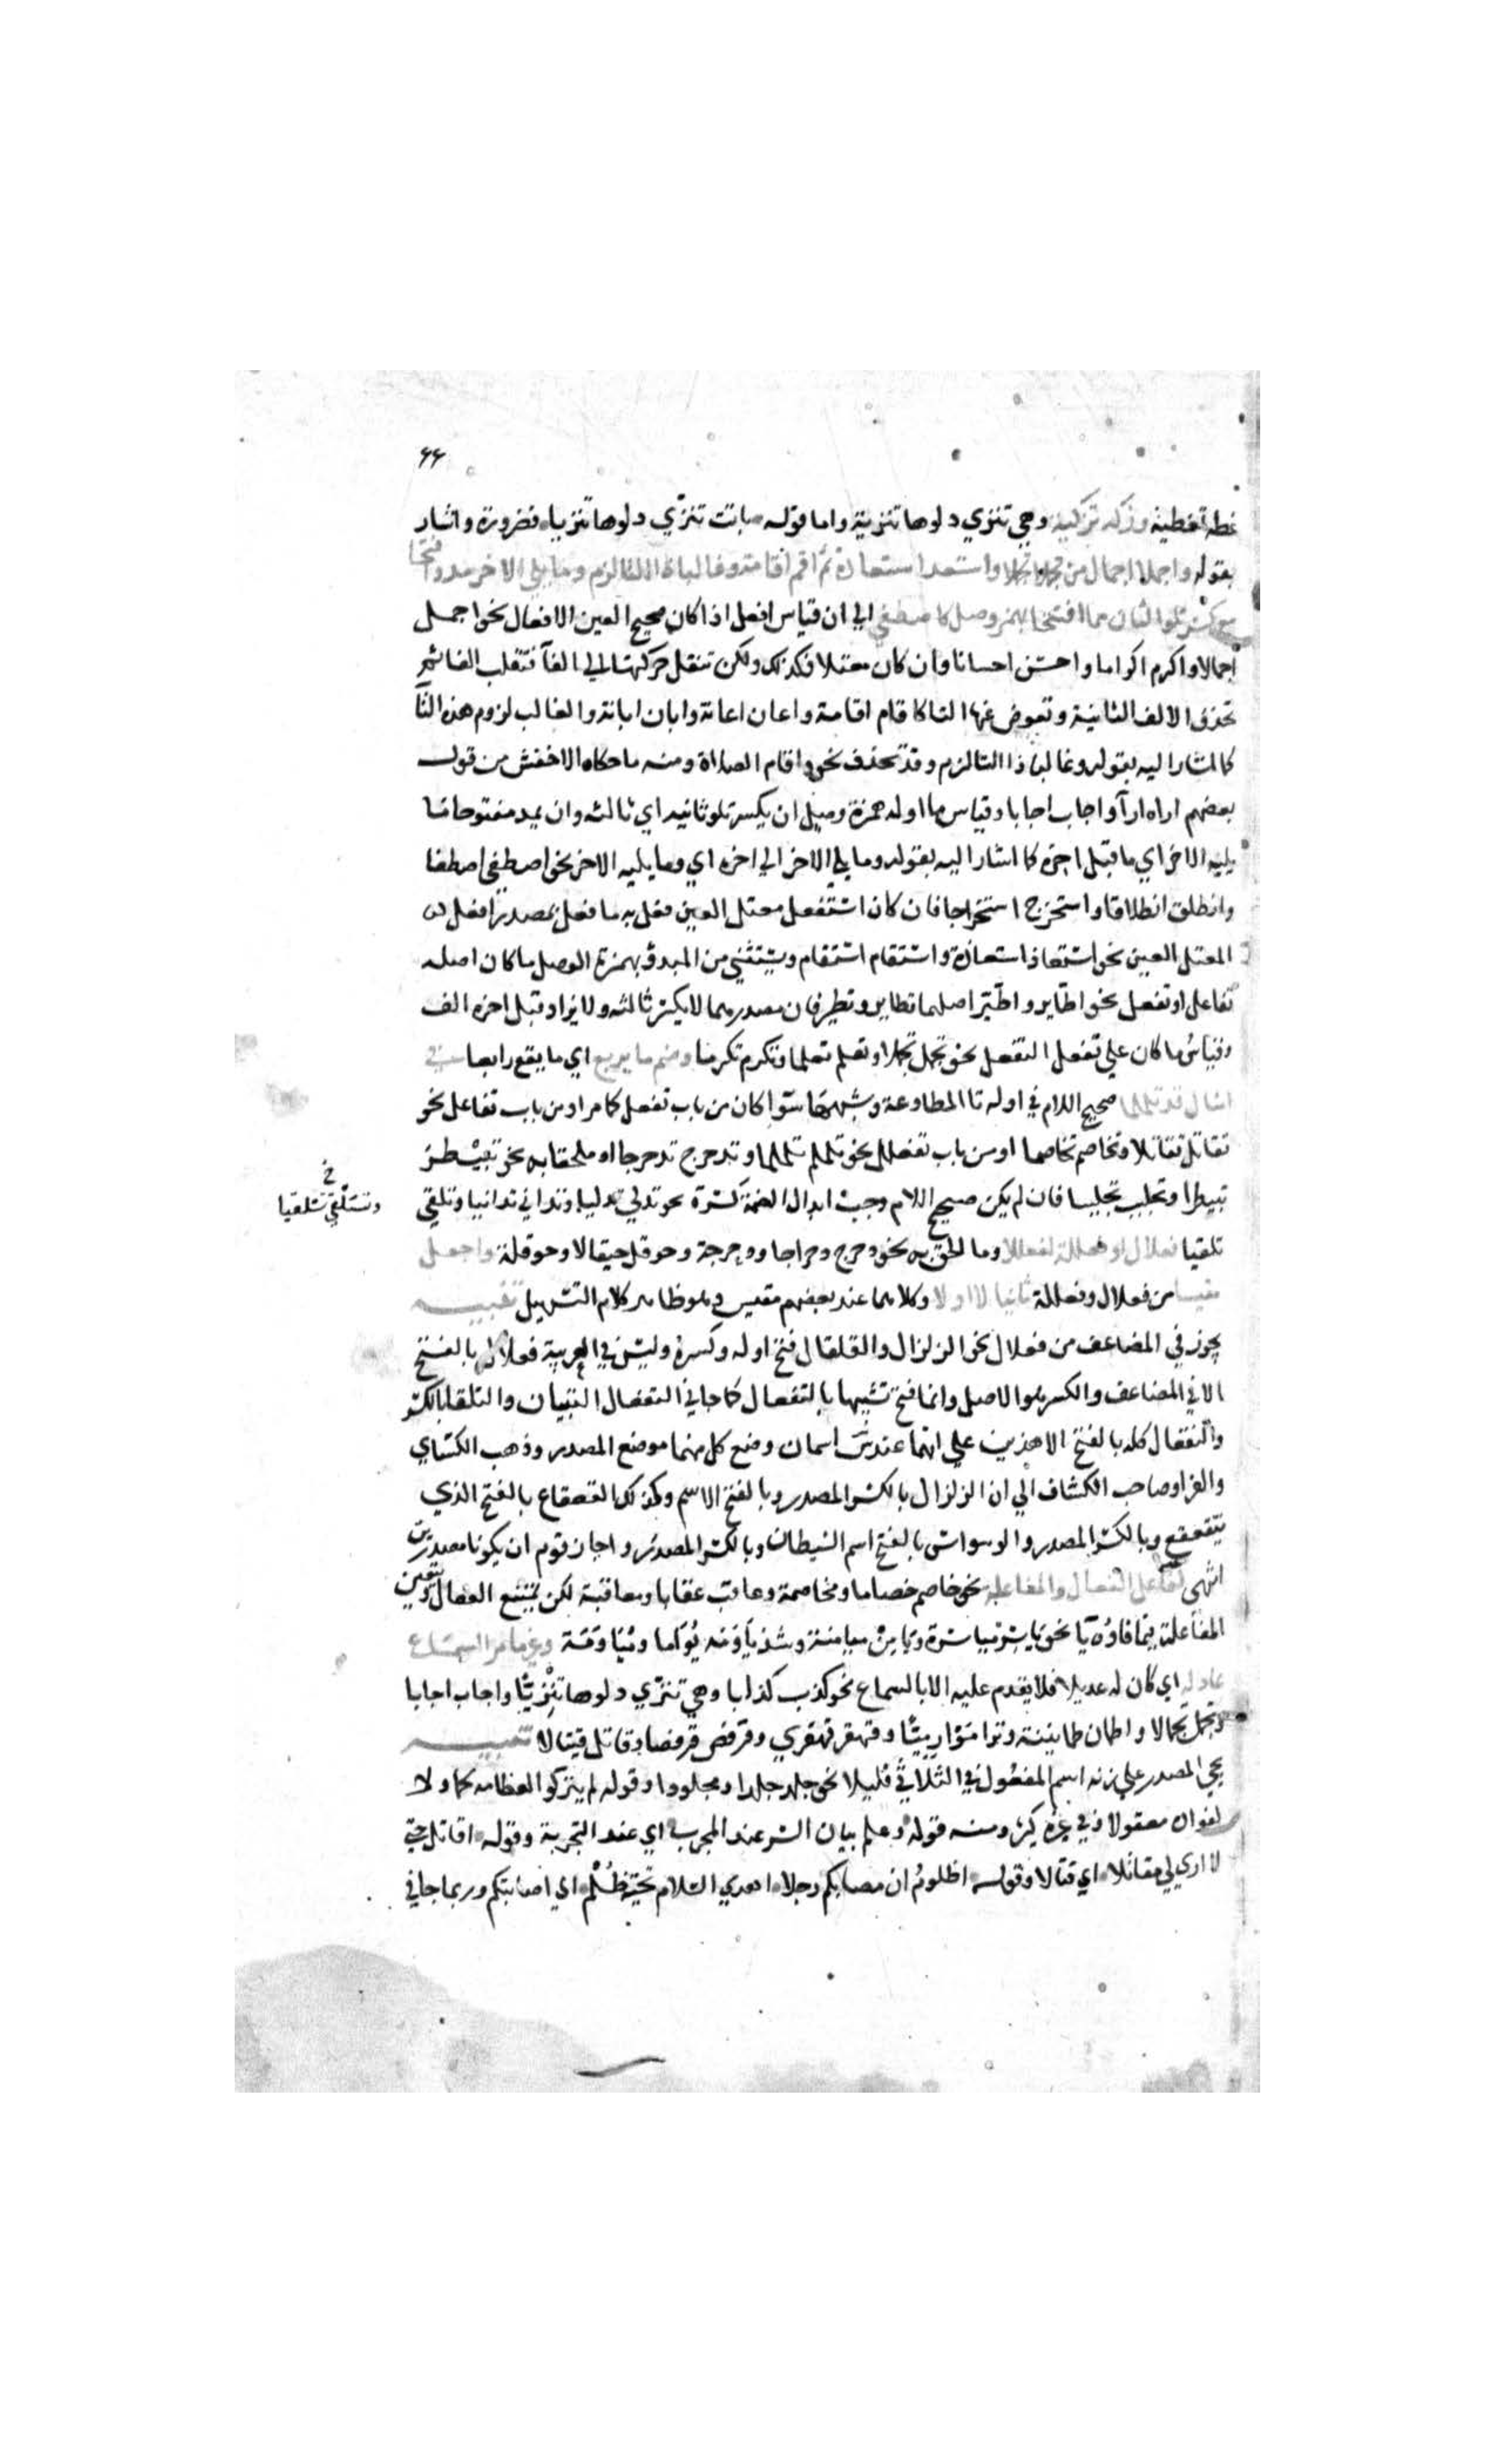 ٩٩
غطه تغطية وزكه تزكية وهي تنزي دلوها تنزية واما قوله باتت تنزّي دلوها تنزيا فضرورة واشار
بقوله واجملا اجمال من تجملا تجملا واستعذ استعاذة ثم اقم اقامة وغالبا ذا التا لزم وما يلي الاخر مد وافتحا
مع كسر تلو الثان مما افتتحا بهمز وصل كاصطفي الي ان قياس افعل اذا كان صحيح العين الافعال نحو اجمل
اجمالا واكرم اكراما واحسن احسانا وان كان معتلا فكذلك ولكن تنقل حركتها الي الفآ فتقلب الفا ثم
تحذف الالف الثانية وتعوض عنها التا كاقام اقامة واعان اعانة وابان ابانة والغالب لزوم هذه التآ
كالمشار اليه بقوله وغالبا ذا التا لزم وقد تحذف نحو واقام الصلاة ومنه ما حكاه الاخفش من قول
بعضهم اراه ارآ واجاب اجابا وقياس ما اوله همزة وصل ان يكسر تلو ثانيه اي ثالثه وان يمد مفتوحا ما
يليه الاخر اي ما قبل اخره كما اشار اليه بقوله وما يلي الاخر الي اخره اي وما يليه الاخر نحو اصطفي اصطفا
وانطلق انطلاقا واستخرج استخراجا فان كان استفعل معتل العين فعل به ما فعل بمصدر افعل
المعتل العين نحو استعاذ استعاذة واستقام استقام ويستثني من المبدؤ بهمزة الوصل ما كان اصله
تفاعل او تفعل نحو اطّاير واطّيّر اصلهما تطاير وتطير فان مصدرهما لا يكسر ثالثه ولا يزاد قبل اخره الف
وقياسُ ما كان علي تفعل التفعل نحو تجمل تجملا وتعلم تعلما وتكرم تكرما وضم ما يربع اي ما يقع رابعا في
امثال قد تلملما صحيح اللام في اوله تا المطاوعة وشبهها سوآ كان من باب تفعل كما مر او من باب تفاعل نحو
تقاتل تقاتلا وتخاصم تخاصما او من باب تفعلل نحو تلملم تلملما وتدحرج تدحرجا او ملحقا به نحو تبيْطر
تبيطرا وتجلبب تجلببا فان لم يكن صحيح اللام وجب ابدال الضمة كسرة نحو تدلي تدليا وتداني تدانيا وتلقي
خ
وتسَلْقي تسلقيا
تلقيا فعلال او فعللة لفعللا وما الحق به نحو دحرج دحراجا ودحرجة وحوقل حيقالا وحوقلة واجعل
مقيسا من فعلال وفعللة ثانيا لا اولا وكلاهما عند بعضهم مقيس وهو ظاهر كلام التسهيل تنبيه
يجوز في المضاعف من فعلال نحو الزلزال والقلقال فتح اوله وكسره وليس في العربية فعلال بالفتح
الا في المضاعف والكسر هو الاصل وانما فتح تشبيها بالتفعال كما جا في التفعال التبيان والتلقا بالكسر
والتفعال كله بالفتح الا هذين علي انهما عند س اسمان وضع كل منهما موضع المصدر وذهب الكساي
والفرا وصاحب الكشاف الي ان الزلزال بالكسر المصدر وبالفتح الاسم وكذلك القعقاع بالفتح الذي
يتقعقع وبالكسر المصدر والوسواس بالفتح اسم الشيطان وبالكسر المصدر واجاز قوم ان يكونا مصدرين
انتهي لفاعل الفعال والمفاعله نحو خاصم خصاما ومخاصمة وعاقب عقابا ومعاقبة لكن يمتنع الفعال ويتعين
المفاعلة فيما فاؤه يآ نحو ياسَر مياسرة ويامن ميامنة وشذ ياوَمَه يُوَاما ومُيَاوَمَة وغير ما مر السماع
عادله اي كان له عديلا فلا يقدم عليه الا بالسماع نحو كذب كذابا وهي تنزّي دلوها تنزيّا واجاب اجابا
وتجمل تجمالا واطمان طمانينة وتراموْا رِمِيّا وقهقر قهقري وقرفص قرفصا وقاتل قيتالا تنبيه
يجي المصدر علي زنه اسم المفعول في الثلاثي قليلا نحو جلد جلدا ومجلودا وقوله لم يتركوا لعظامه لحما ولا
لفواده معقولا وفي غيره كثير ومنه قوله وعلم بيان الشر عند المجرب اي عند التجربة وقوله اقاتل حتي
لا اري لي مقاتلا اي قتالا وقوله اظلومُ ان مصابكم رجلا اهدي السلام تحيّة ظُلْم اي اصابتكم وربما جا في